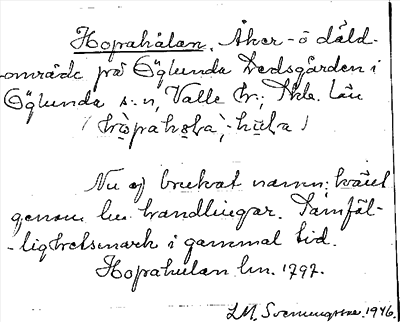 Hopahålan. Åker- o däld-
område på Öglunda Nedsgården i
Öglunda s:n, Valle hd., Skb. län
Nu ej brukat namn; känt
genom lm. handlingar. Samfäl-
-lighetsmark i gammal tid.
Hopahulan lm. 1797.
LM. Svenungsson. 1946.